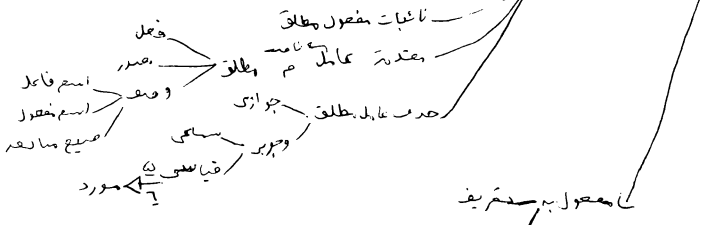 نائبات مفعول مطلق
مقدمة عامل م مطلق
فعل
مصدر
وصف
اسم فاعل
اسم مفعول
صیغ مبالغه
حذف عامل مطلق
جوازی
وجوبی
سماعی
قیاسی
۵
٦
مورد
مفعول به تعریف